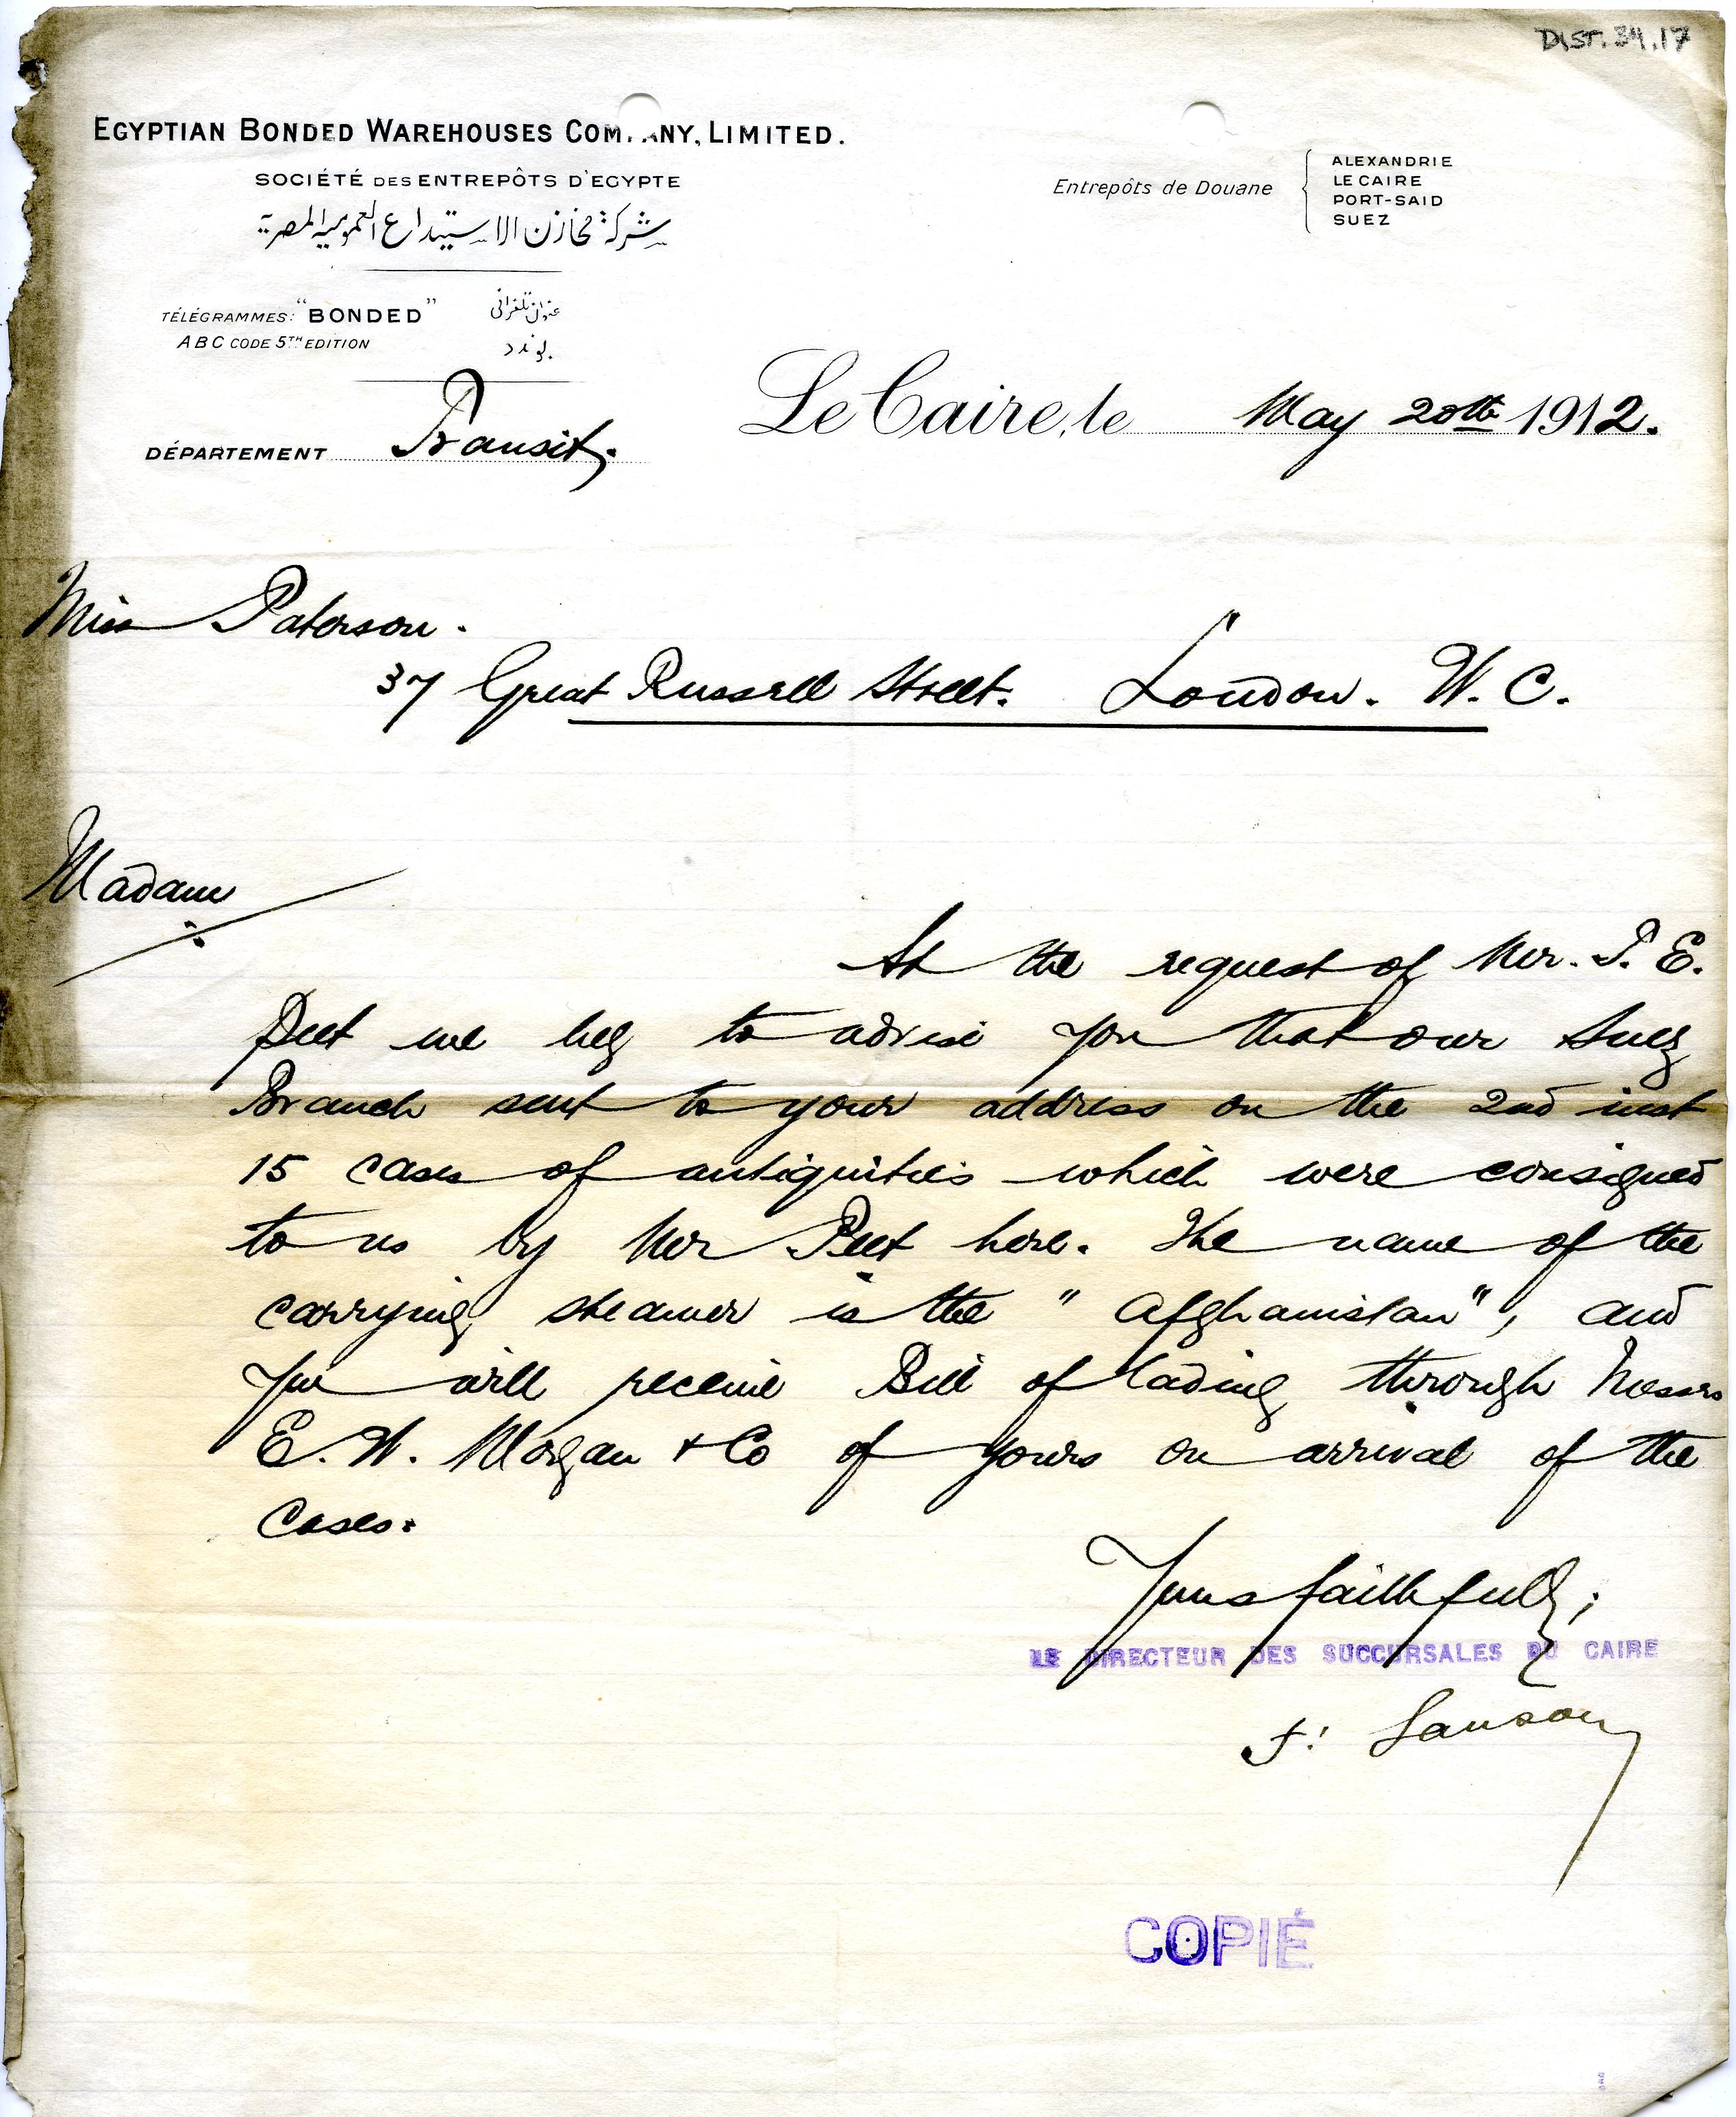 DIST. 34.17
EGYPTIAN BONDED WAREHOUSES COM. ANY, LIMITED.
SOCIÉTÉ DES ENTREPÔTS D'EGYPTE
شركة مخازن الاستيداع العمومية المصرية
Entrepôts de Douane
ALEXANDRIE
LE CAIRE
PORT-SAID
SUEZ
TÉLÉGRAMMES: "BONDED"
عنوان تلغرافى
A B C CODE 5TH EDITION
بوندد
DÉPARTEMENT Transit.
Le Caire, le May 20th 1912.
Miss Paterson.
37 Great Russell Street. London. W. C.
Madam
At the request of Mr. T. E.
Peet we beg to advise you that our Suez
Branch sent to your address on the 2nd inst
15 cases of antiquities which were consigned
to us by Mr Peet here. The name of the
carrying steamer is the "Afghanistan", and
you will receive Bill of lading through Messrs
E. W. Morgan & Co of yours on arrival of the
Cases.
Yours faithfully,
LE DIRECTEUR DES SUCCURSALES DU CAIRE
COPIÉ